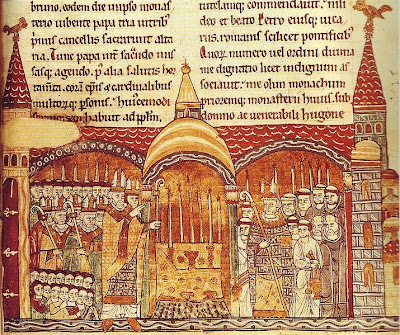 bruno. eodem die impso monas
terio iubente papa tria tribus
primis cancellis sacrarunt alta
ria. Tunc papa int sacrandū mis
sasq; agendo. p9 alia salutis hor
tam̄ta. corā ep̄is & cardinalibus
multorūq; p̄sonis. huiuscemodi
sermonem habuit ad pp̄lm.
tutelamq; commendauit. nisi
deo et beato Petro eiusq; uica
riis. romanis scilicet pontificib;
Quorum numero uel ordini diuina
me dignatio licet indignum as
sociauit. me olim monachum
prioremq; monasterii huius. sub
domno ac uenerabili hugone